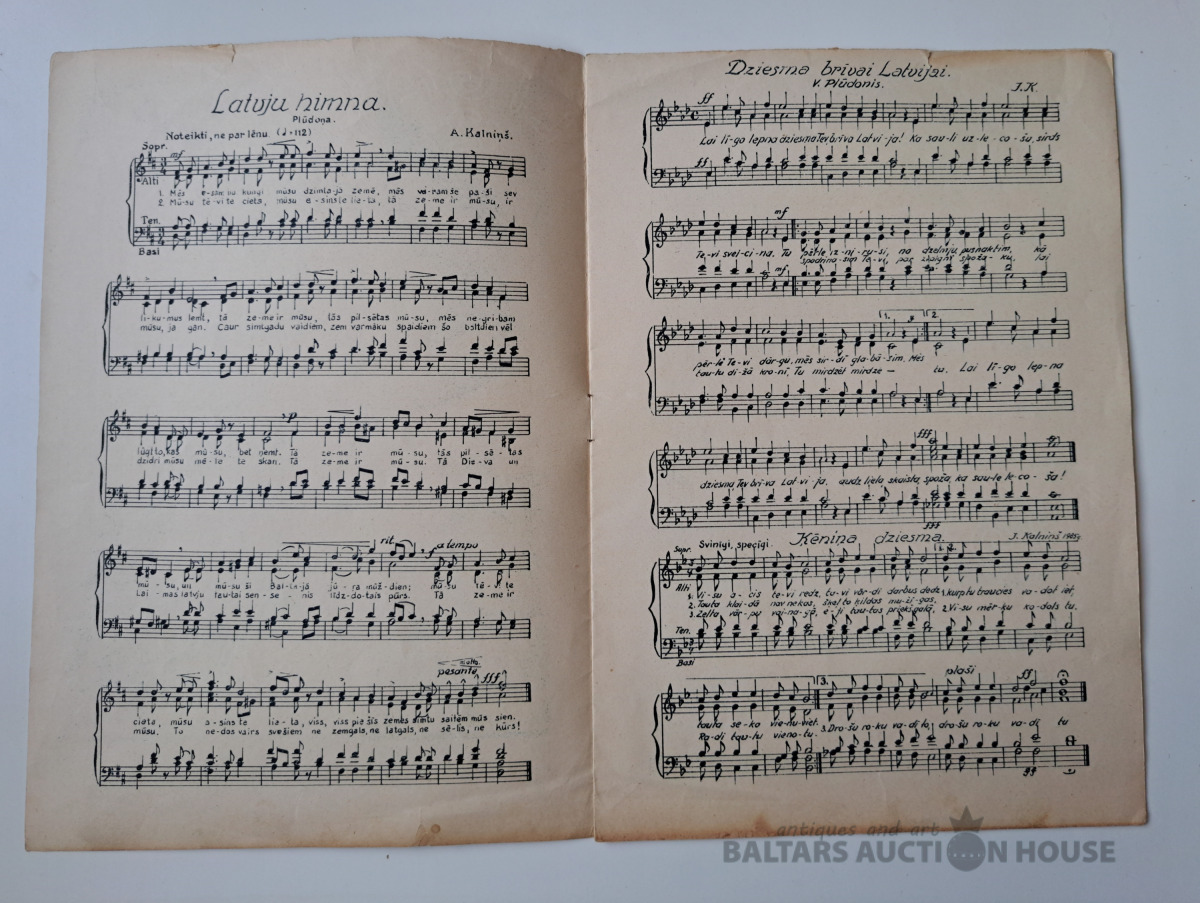 Latvju himna.
Plūdoņa.
Noteikti, ne par lēnu (♩=112)
A. Kalniņš.
Sopr.
mf
Alti
1. Mēs e-sam nu kungi mūsu dzimta-jā zemē, mēs varam še pa-ši sev
2. Mū-su tē-vi te ciets, mūsu a-sins te lie-ta, tā ze-me ir mū-su, ir
Ten.
Basi
li-ku-mus lemt, tā ze-me ir mūsu, tās pil-sētas mū-su, mēs ne-gribam
mūsu, ja gan. Caur simtgadu vaidiem, zem varmāku spaidiem šo baltdien vēl
p
lūgt to, kas mū-su, bet ņemt. Tā ze-me ir mū-su, tās pil-sē-tas
dzidri mūsu mē-le te skan. Tā ze-me ir mū-su. Tā Die-va un
rit.
a tempo
f
mū-su, un mū-su šī Bal-ta-jā jū-ra mūž-dien; mū-su tē-vi te
Lai-mas latvju tau-tai sen-se-nis līdz-do-tais pūrs. Tā ze-me ir
molto
pesante
fff
cieta, mūsu a-sins te lie-ta, viss, viss pie šīs zemes simtu saitēm mūs sien.
mūsu. To ne-dos vairs svešiem ne zemgals, ne latgals, ne sē-lis, ne kūrs!
Dziesma brīvai Latvijai.
V. Plūdonis.
J.K.
ff
Lai lī-go lepna dziesma Tev brīva Latvi-ja! Kā sau-li uz-le-co-šu, sirds
ff
mf
Te-vi svei-ci-na. Tu pētle iz-ni-ru-si, no dzelmju pusnaktīm, kā
spodrina-sim te-vi, par zvaigni spoža-ku, lai
mf
1. 2.
pēr-li Te-vi dār-gu, mēs sir-dī gla-bā-sim. Mēs
tau-tu di-žā kro-nī, Tu mirdzēt mirdze — tu. Lai lī-go lep-na
fff
dziesma, Tev brī-va Lat-vi-ja, audz liela, skaista, spoža, kā sau-le le-co-ša!
fff
Ķēniņa dziesma.
Sopr.
Svinīgi, spēcīgi.
J. Kalniņš 1935g.
1. 2.
Alti
1. Vi-su a-cis te-vi redz, ta-vi vār-di darbus dedz, kurp tu traucies va-dot iet,
2. Tauta klai-dā nav nekas, šķel to ķildas mu-žī-gas.
3. Zelta vār-pu vai-na-gā, e-ji tau-tas priekšgalā, 2. Vi-su mēr-ķu ka-dals tu.
Ten.
Basi
3.
plaši
ff
tauta se-ko vie-nu-viet.
Ro-di tau-tu vieno-tu. 3. Dro-šu ro-ku va-dī to, dro-šu ro-ku va-dī tu
antiques and art
BALTARS AUCTION HOUSE